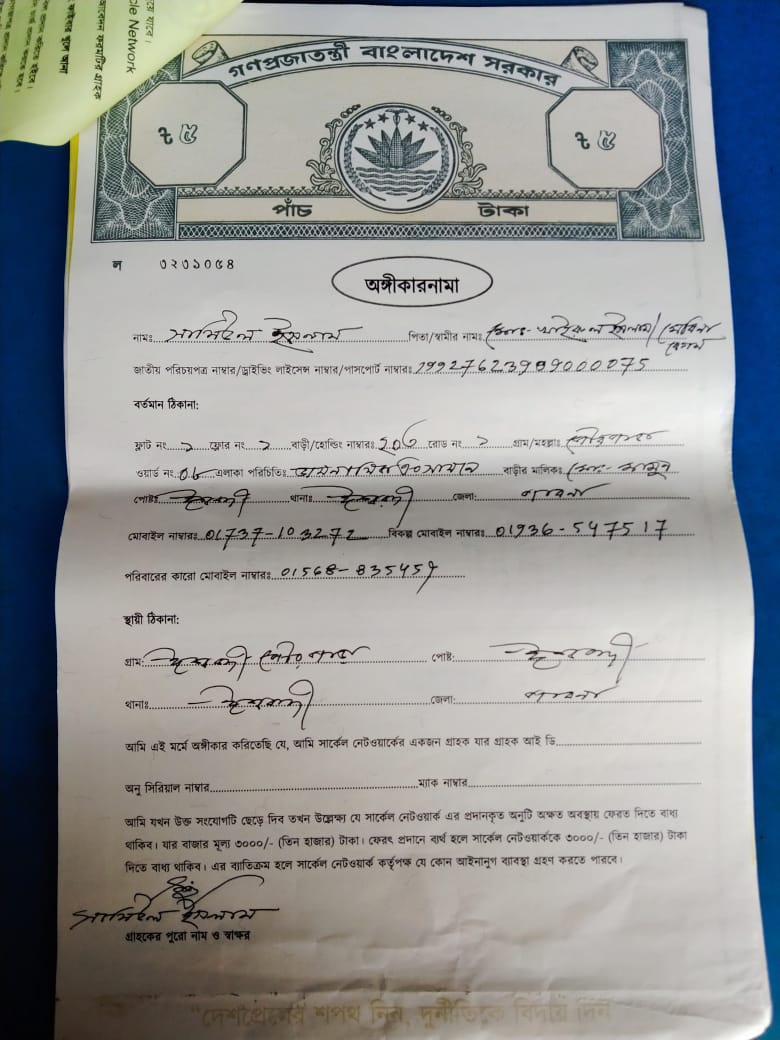 গণপ্রজাতন্ত্রী বাংলাদেশ সরকার
৳ ৫ ৳ ৫
পাঁচ টাকা
ল ৩২৩১০৫৪
অঙ্গীকারনামা
নামঃ ইসলাম পিতা/স্বামীর নামঃ মোঃ- ইসলাম/
বেগম
জাতীয় পরিচয়পত্র নাম্বার/ড্রাইভিং লাইসেন্স নাম্বার/পাসপোর্ট নাম্বারঃ
বর্তমান ঠিকানা:
ফ্লাট নং ১ ফ্লোর নং ১ বাড়ী/হোল্ডিং নাম্বারঃ রোড নং ১ গ্রাম/মহল্লাঃ
ওয়ার্ড নং 08 এলাকা পরিচিতিঃ বাড়ীর মালিকঃ মোঃ- মামুন
পোষ্টঃ ঈশ্বরদী থানাঃ ঈশ্বরদী জেলা: পাবনা
মোবাইল নাম্বারঃ 01737-103272 বিকল্প মোবাইল নাম্বারঃ 01936-547517
পরিবারের কারো মোবাইল নাম্বারঃ 01568-835459
স্থায়ী ঠিকানা:
গ্রাম: ঈশ্বরদী পোষ্ট: ঈশ্বরদী
থানাঃ ঈশ্বরদী জেলা: পাবনা
আমি এই মর্মে অঙ্গীকার করিতেছি যে, আমি সার্কেল নেটওয়ার্কের একজন গ্রাহক যার গ্রাহক আই ডি
অনু সিরিয়াল নাম্বার ম্যাক নাম্বার
আমি যখন উক্ত সংযোগটি ছেড়ে দিব তখন উল্লেক্ষ্য যে সার্কেল নেটওয়ার্ক এর প্রদানকৃত অনুটি অক্ষত অবস্থায় ফেরত দিতে বাধ্য
থাকিব। যার বাজার মূল্য ৩০০০/- (তিন হাজার) টাকা। ফেরৎ প্রদানে ব্যর্থ হলে সার্কেল নেটওয়ার্ককে ৩০০০/- (তিন হাজার) টাকা
দিতে বাধ্য থাকিব। এর ব্যাতিক্রম হলে সার্কেল নেটওয়ার্ক কর্তৃপক্ষ যে কোন আইনানুগ ব্যাবস্থা গ্রহণ করতে পারবে।
ইসলাম
গ্রাহকের পুরো নাম ও স্বাক্ষর
"দেশপ্রেমের শপথ নিন, দুর্নীতিকে বিদায় দিন